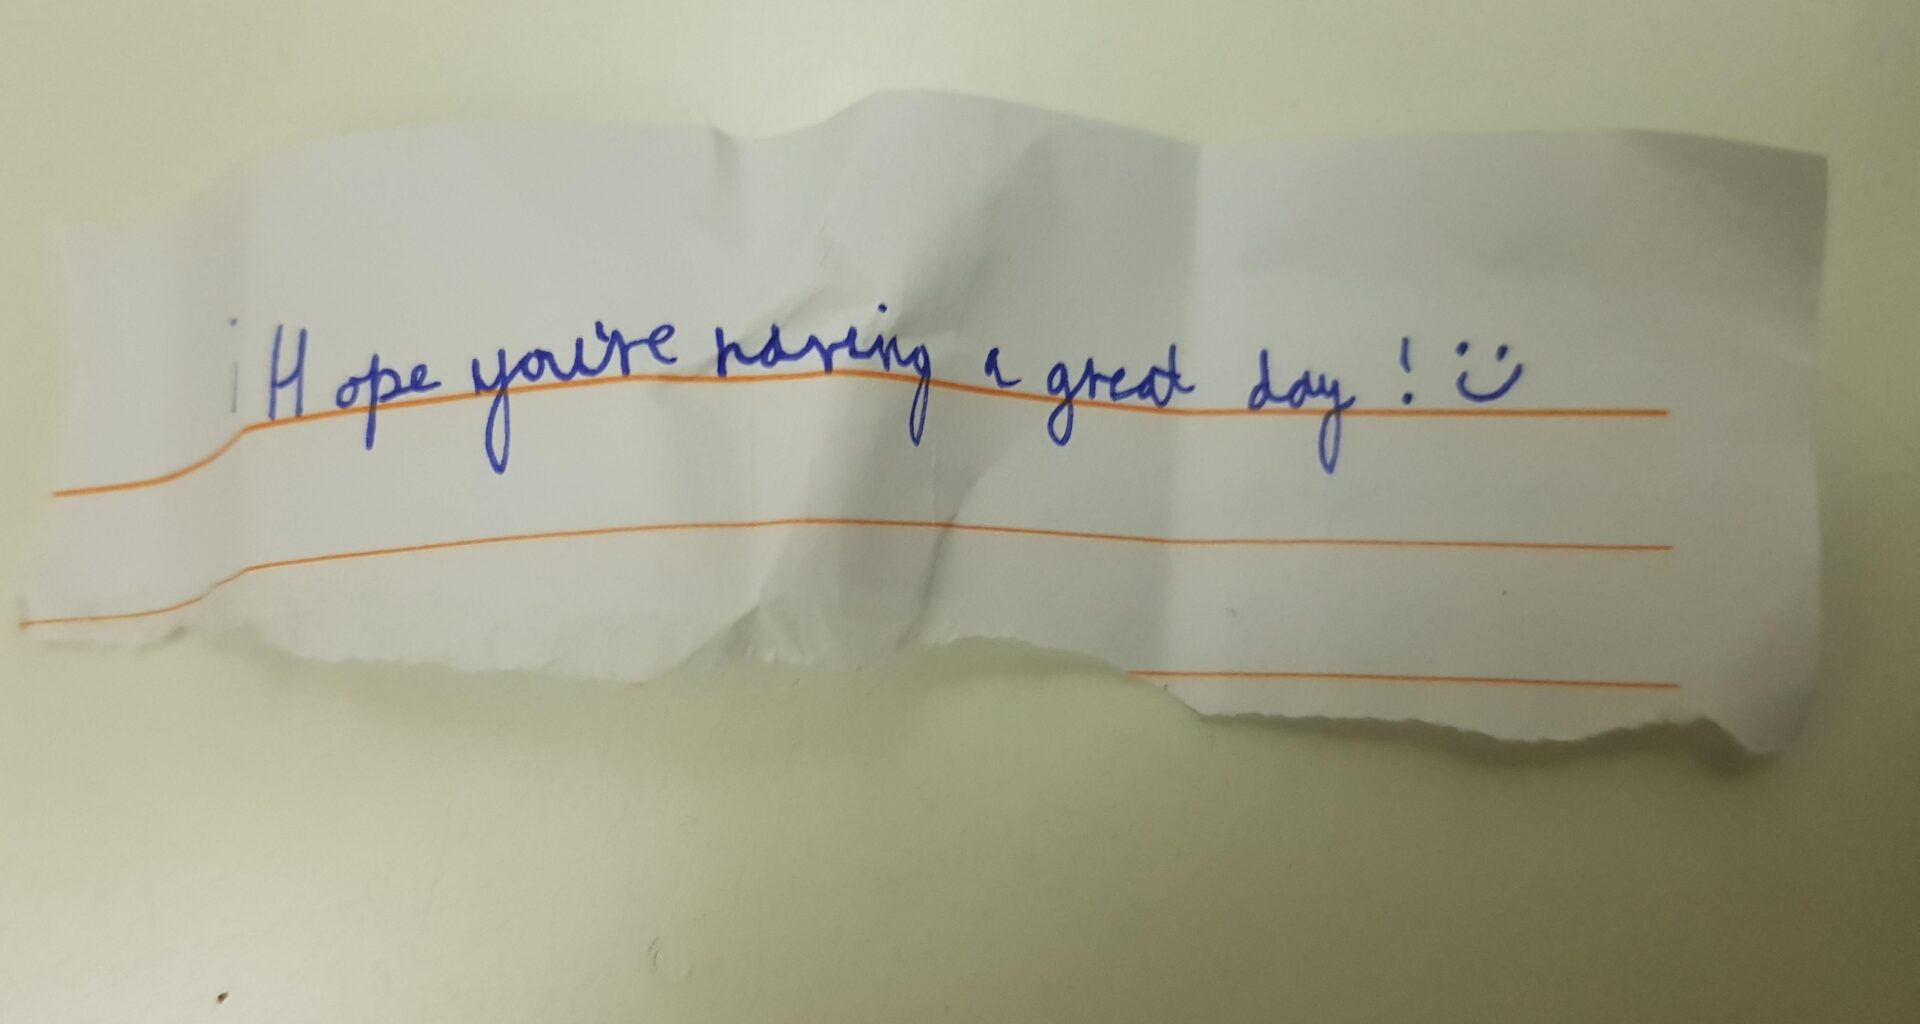 ¡Hope you're having a great day! :)